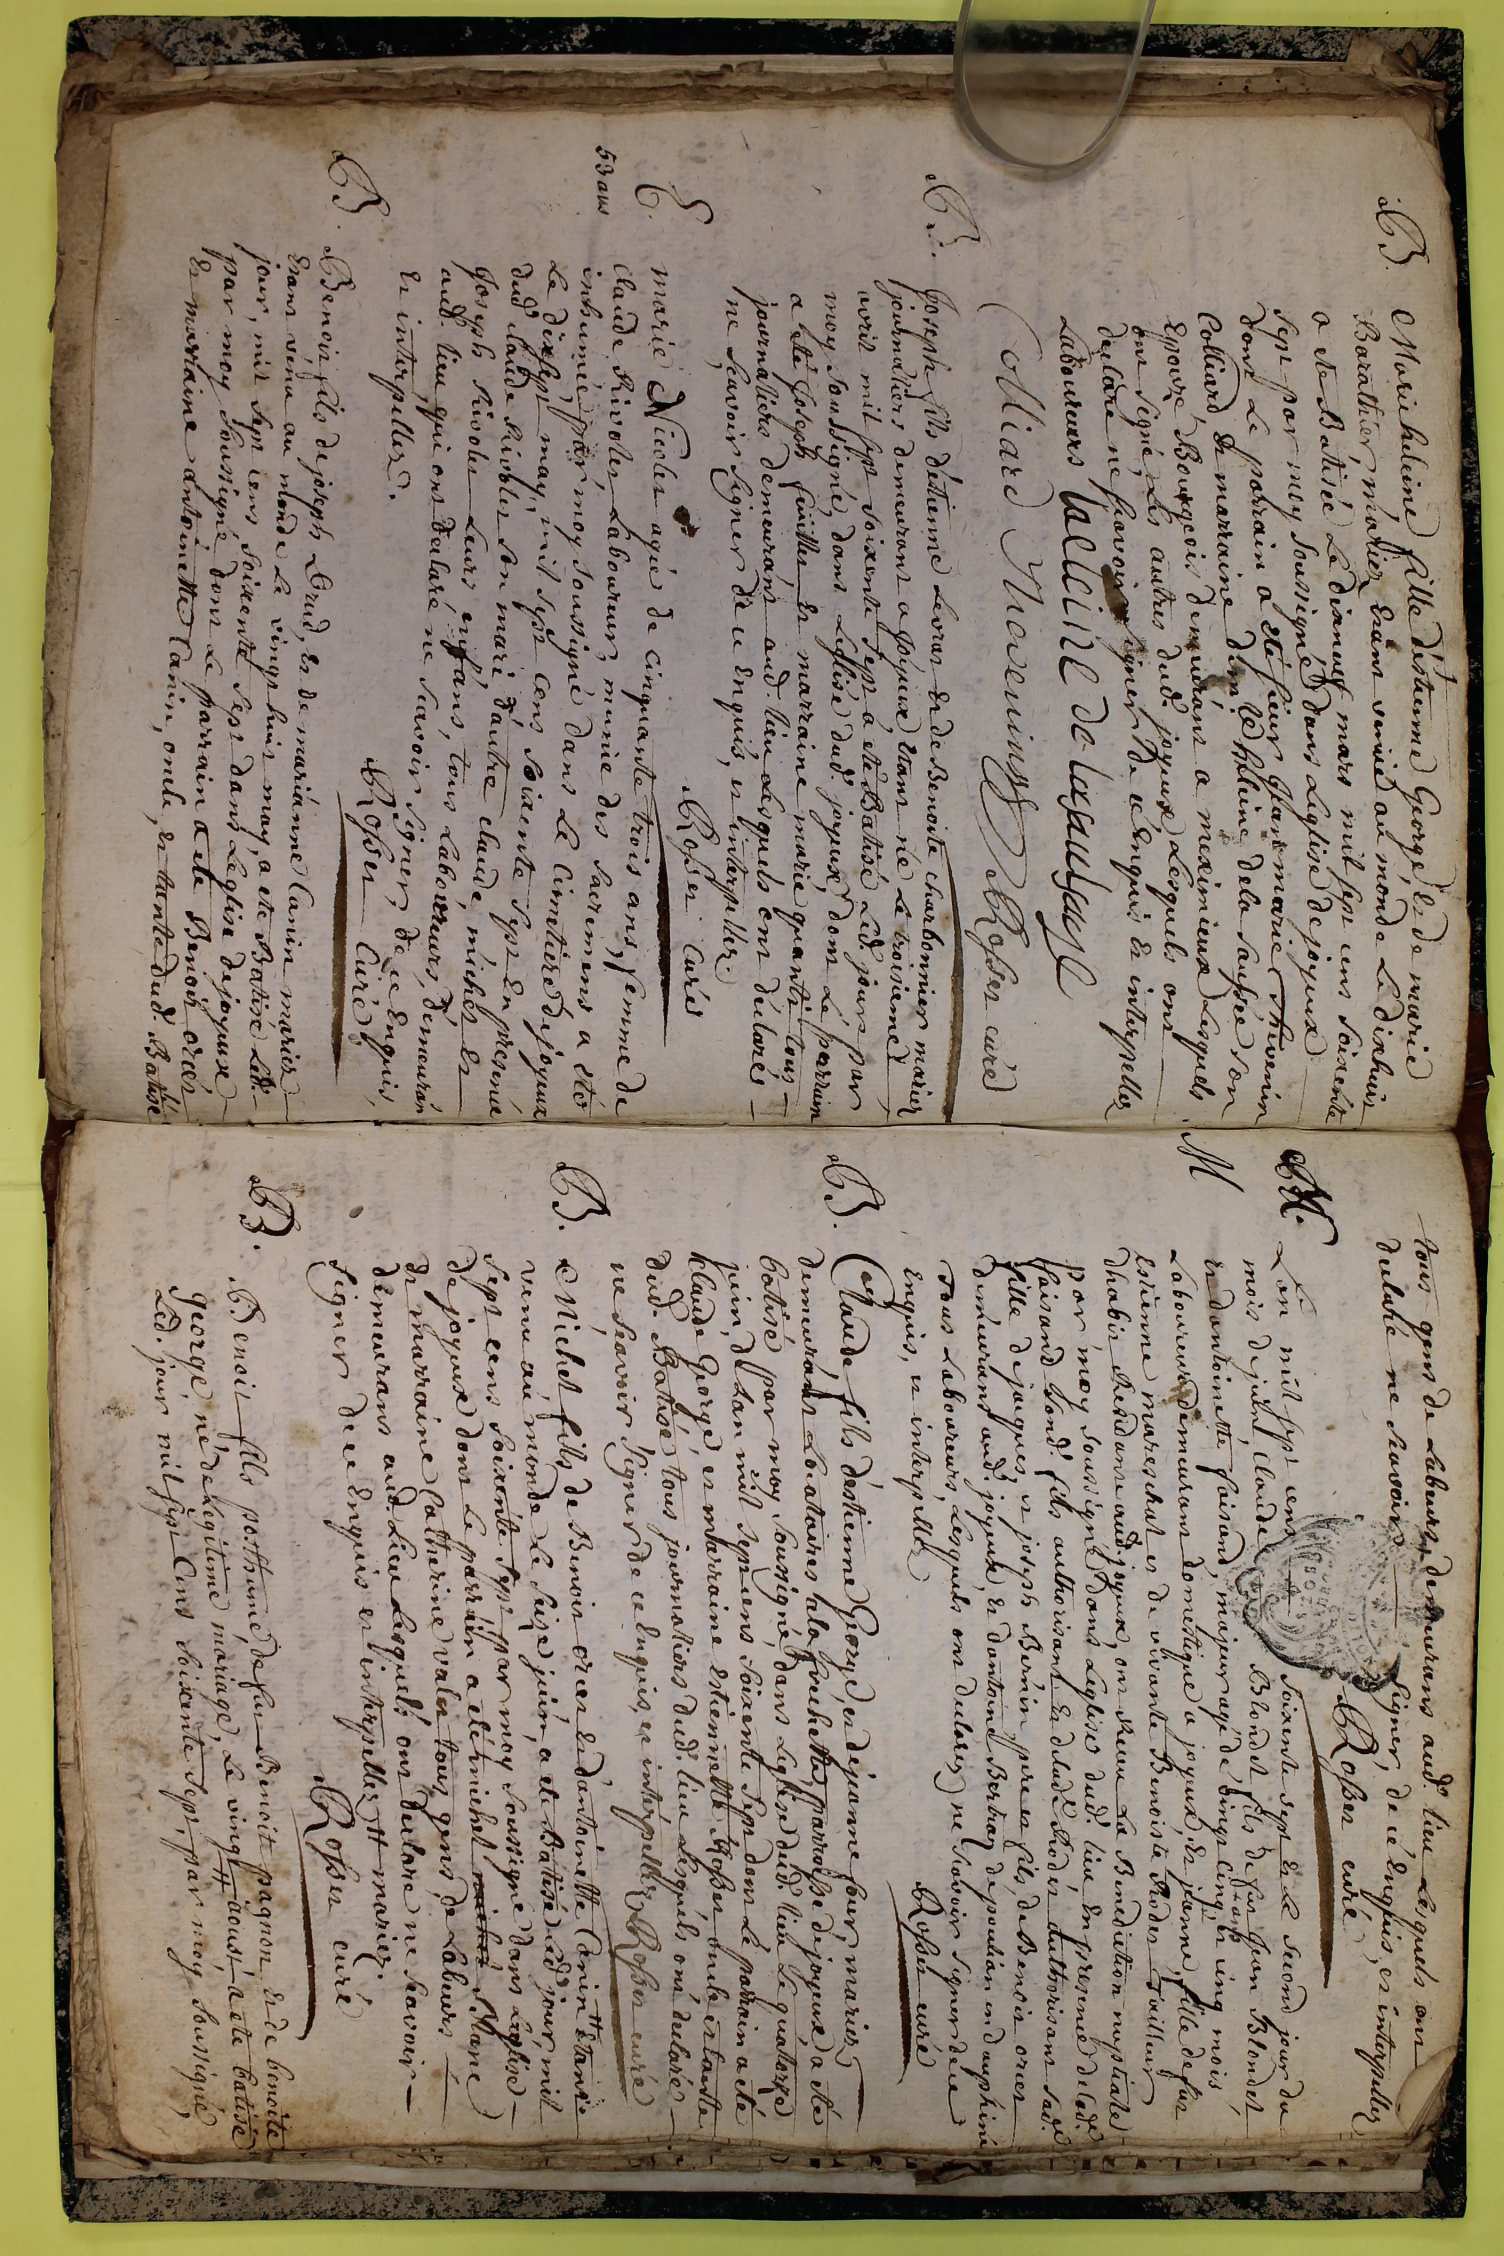 B. Marie heleine fille d'estienne George, et de marie
Barathier, mariez Etant venüe au monde Le dixhuit
a eté Batisée Le dixneuf mars mil sept cens soixente
sept par moy soussigné dans L'eglise de joyeux
dont Le parrain a eté sieur jean marie thevenin
Colliard, et marraine dem.lle heleine dela saussée son
Epouze, Bourgeois demeurans a meximieux Lesquels
ont signé, Les autres dud. joyeux, Lesquels ont
declaré ne sçavoir signer de ce Enquis et interpellez
Laboureurs
Colliard Thevening Rosser curé
B. Joseph fils d'estienne Levrat et de Benoite charbonnier mariez
journaliers demeurant a joyeux Etant né Le troisieme
avril mil sept soixente sept a eté Batisé Led. jour par
moy soussigné, dans L'eglise dud. joyeux dont Le parrain
a eté joseph et marraine marie tous
journalliers demeurans aud. lieu Lesquels ont déclarés
ne sçavoir signer de ce enquis, et interpellez.
Rosser curés
E. marie Nicolet agée de cinquante trois ans, femme de
53 ans claude Rivolet Laboureur, munie des sacremens a eté
inhumée, par moy soussigné dans Le Cimetiere de joyeux
Le dixsept may, mil sept cens soixente sept En presence
dud. claude Rivolet son mari d'autre claude, michel et
joseph Rivolet Leurs enfans, tous Laboureurs, demeurans
aud. lieu qui ont declaré ne scavoir signer, de ce Enquis,
et interpellez. Rosser Curé
B. Benoit fils de joseph Brud, et de marianne Canin mariez
Etant vénu au monde Le vingt huit may, a eté Batisé Led.
jour, mil sept cens soixente sept dans L'eglise de joyeux
par moy soussigné dont Le parrain a eté Benoit orcet
et marraine antoinette Canin, oncle, et tante dud. Batisé
tous gens de Labeurs, demeurans aud. lieu Lesquels ont
declaré ne scavoir signer, de ce Enquis, et interpellez
Rosser curé
M. L'an mil sept cens soixente sept et Le second jour du
M mois de juin, claude Blondet fils de feu jean Blondet
et d'antoinette faisand, majeur agé de vingt cinq ans cinq mois
Laboureur demeurant domestique a joyeux, et jeanne fille de feu
Estienne mareschat et de vivante Benoiste Rodet Tailleur
d'habit residant aud. joyeux, ont Receu La Benediction nuptiale
par moy soussigné dans L'eglise dud. lieu En presence de lad.
faisand fils authorisant Et de lad. Rodet authorisant sad.
fille de jacques, et joseph Bernin pere et fils, de Benoit orcet
demeurant aud. joyeux, et d'antoine Bertier de poulian en dauphiné
Tous Laboureurs, Lesquels ont declarez ne scavoir signer de ce
enquis, et interpellez Rosser curé
B. Claude fils d'estienne George, et de jeanne four, mariez
demeurans Locataires a la fruchette, parroisse de joyeux a eté
batisé par moy soussigné, dans L'eglise dud. lieu Le quatorze
juin, L'an mil sept cens soixente sept dont Le parrain a eté
claude George et marraine Estiennette Rosset, oncle et tante
dud. Batisé tous journaliers dud. lieu Lesquels ont declaré
ne scavoir signer de ce Enquis, et intérpellez Rosser curé
B. Michel fils de Benoit orcet et d'antoinette Canin ++ Etant
venu au monde Le seize juin, a eté Batisé Led. jour, mil
sept cens soixente sept par moy soussigné dans L'eglise
de joyeux dont Le parrain a eté michel
et marraine Catherine valet tous gens de Labeurs
demeurans aud. Lieu Lesquels ont declaré ne scavoir
signer de ce Enquis et interpellez ++ mariez.
Rosser curé
B. Benoit fils posthume, de feu Benoit pagnon et de benoite
George né de Legitime mariage, Le vingt aoust a eté batisé
Led. jour mil sept Cens soixente sept, par moy soussigné,